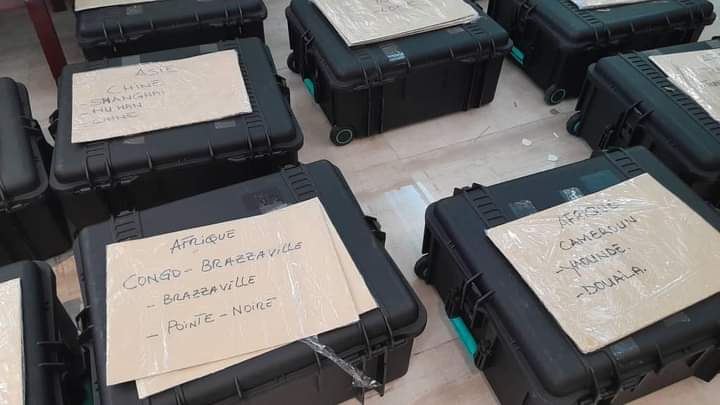 ASIE
CHINE
- SHANGHAI
- HU HAN
- CHINE
AFRIQUE
CONGO - BRAZZAVILLE
- BRAZZAVILLE
- POINTE - NOIRE
AFRIQUE
CAMEROUN
- YAOUNDE.
- DOUALA.